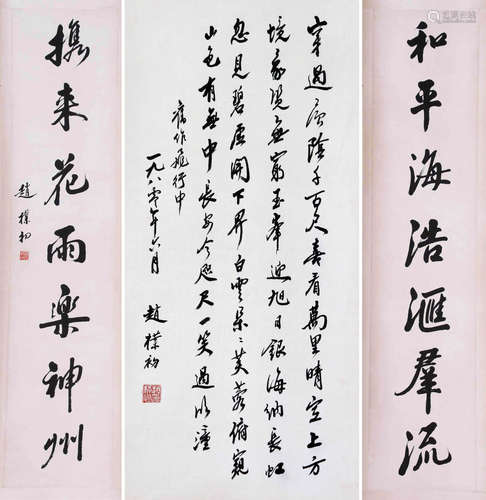 和平海浩滙羣流
穿過層陰千百尺喜看萬里晴空上方
境象無窮玉峯迎旭日銀海納長虹
忽見碧虛開下界白雲朵〻芙蓉俯窺
山色有無中長安今咫尺一笑過臨潼
舊作飛行中
一九八零年六月
趙樸初
攜来花雨楽神州
趙樸初